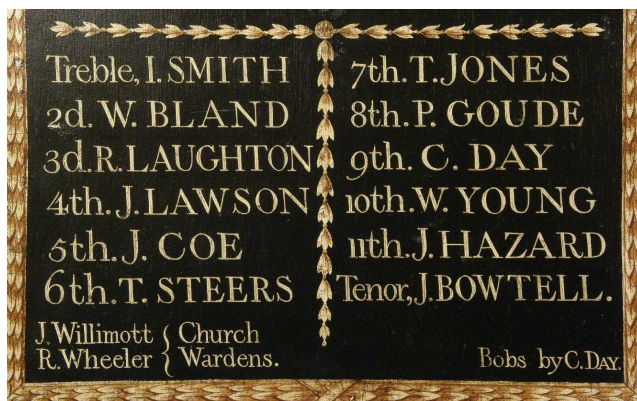 Treble, I. SMITH
2d. W. BLAND
3d. R. LAUGHTON
4th. J. LAWSON
5th. J. COE
6th. T. STEERS
7th. T. JONES
8th. P. GOUDE
9th. C. DAY
10th. W. YOUNG
11th. J. HAZARD
Tenor, J. BOWTELL.
J. Willimott { Church
R. Wheeler { Wardens.
Bobs by C. DAY.